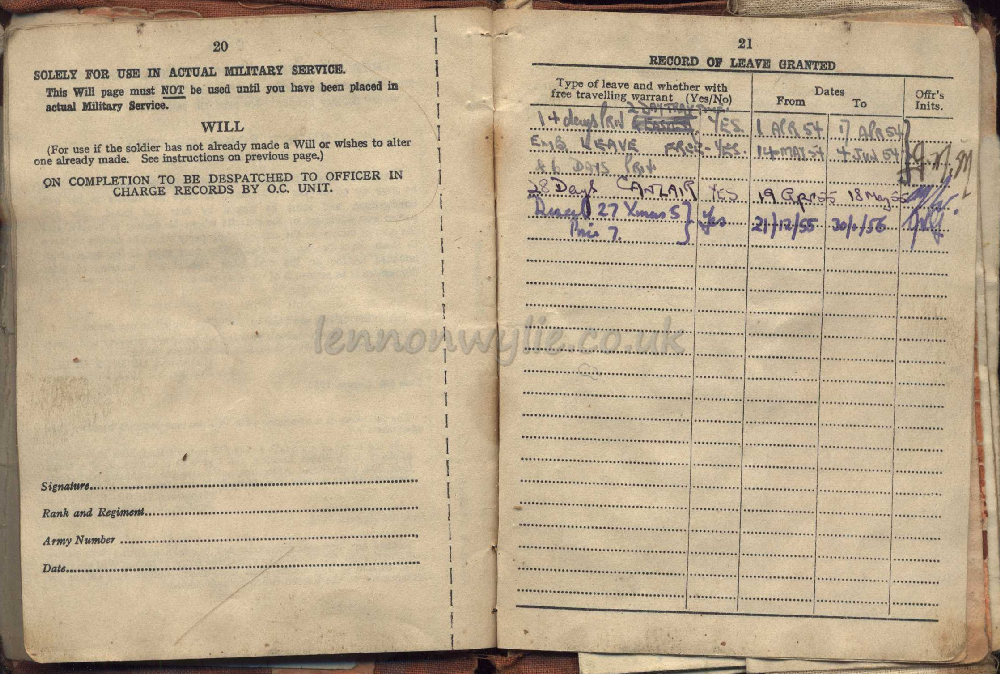 20
SOLELY FOR USE IN ACTUAL MILITARY SERVICE.
This Will page must NOT be used until you have been placed in
actual Military Service.
WILL
(For use if the soldier has not already made a Will or wishes to alter
one already made. See instructions on previous page.)
ON COMPLETION TO BE DESPATCHED TO OFFICER IN
CHARGE RECORDS BY O.C. UNIT.
Signature
Rank and Regiment
Army Number
Date
21
RECORD OF LEAVE GRANTED
Type of leave and whether with
free travelling warrant (Yes/No)
Dates
From To
Offr's
Inits.
14 days YES 1 APR 54 17 APR 54
LEAVE FREE-YES. 14 MAY 54 4 JUN 54
DAYS
28 Days YES 19 Apr 55 18 May 55
27 Xmas 5 } Yes 21/12/55 30/1/56
7.
lennonwylie.co.uk